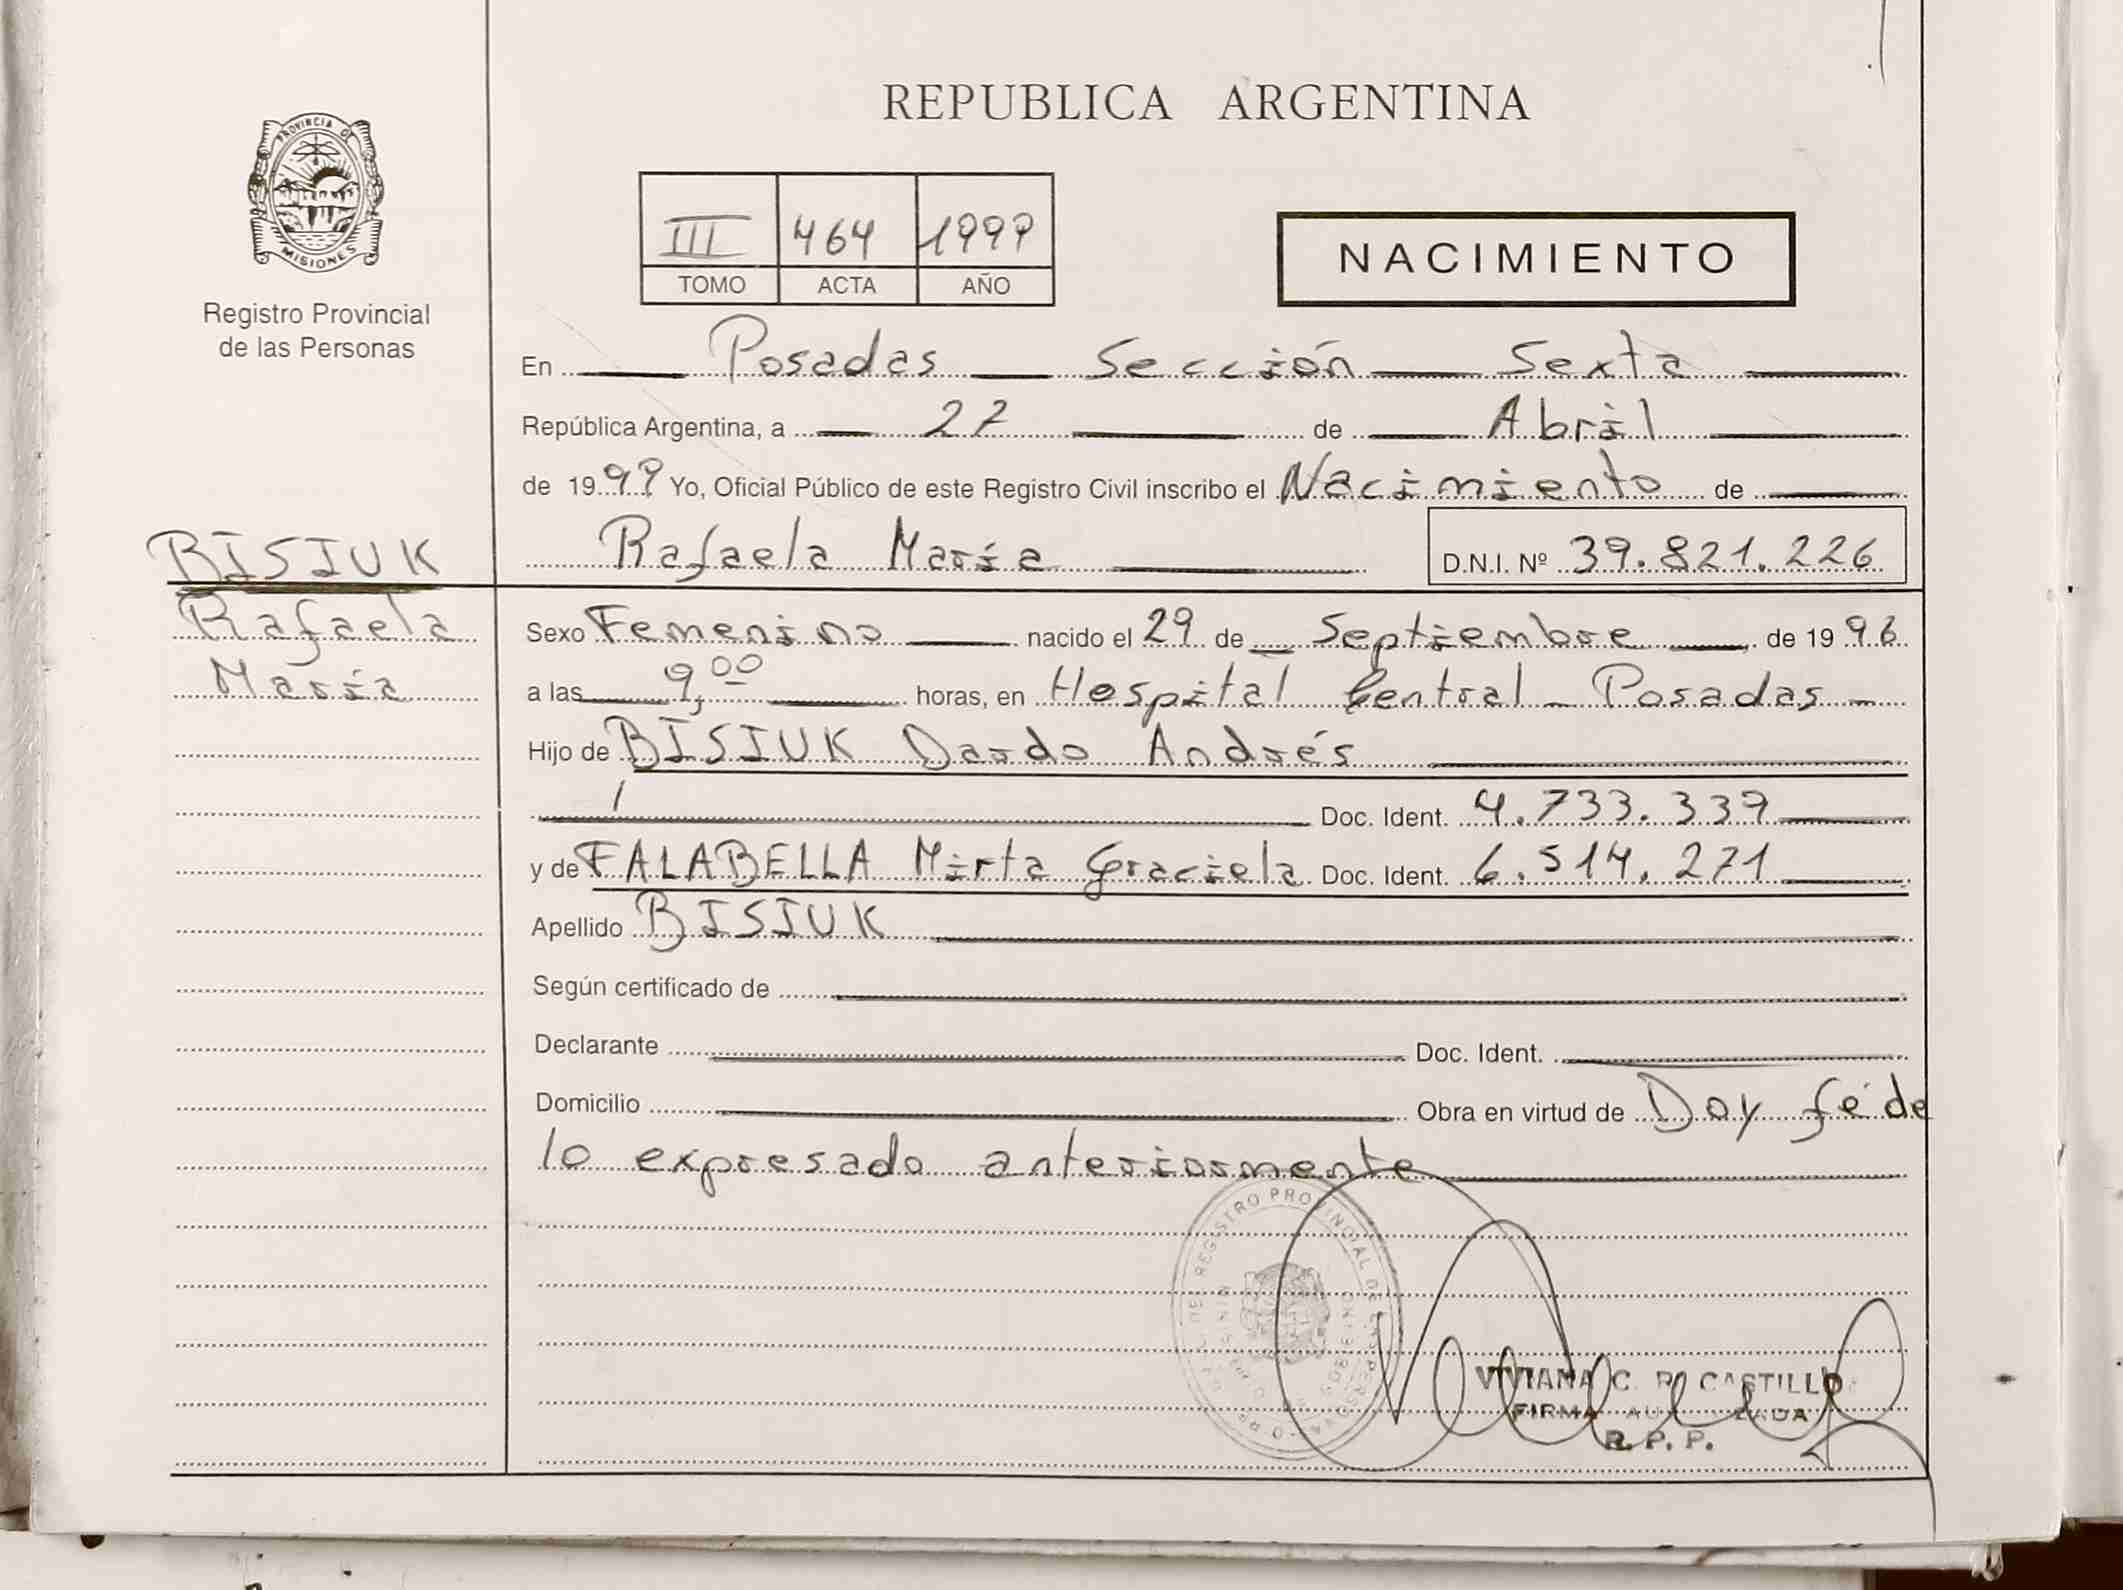 REPUBLICA ARGENTINA
PROVINCIA DE
MISIONES
Registro Provincial
de las Personas
III 464 1999
TOMO ACTA AÑO
NACIMIENTO
En Posadas Sección Sexta
República Argentina, a 27 de Abril
de 1999 Yo, Oficial Público de este Registro Civil inscribo el Nacimiento de
Rafaela María D.N.I. Nº 39.821.226
BISIUK
Rafaela
María
Sexo Femenino nacido el 29 de Septiembre de 1996
a las 9,00 horas, en Hospital Central - Posadas
Hijo de BISIUK Dardo Andrés
Doc. Ident. 4.733.339
y de FALABELLA Mirta Graciela Doc. Ident. 6.514.271
Apellido BISIUK
Según certificado de
Declarante Doc. Ident.
Domicilio Obra en virtud de Doy fé de
lo expresado anteriormente
REGISTRO PROVINCIAL DE LAS PERSONAS
VIVIANA C. CASTILLO
FIRMA AUTORIZADA
R. P. P.